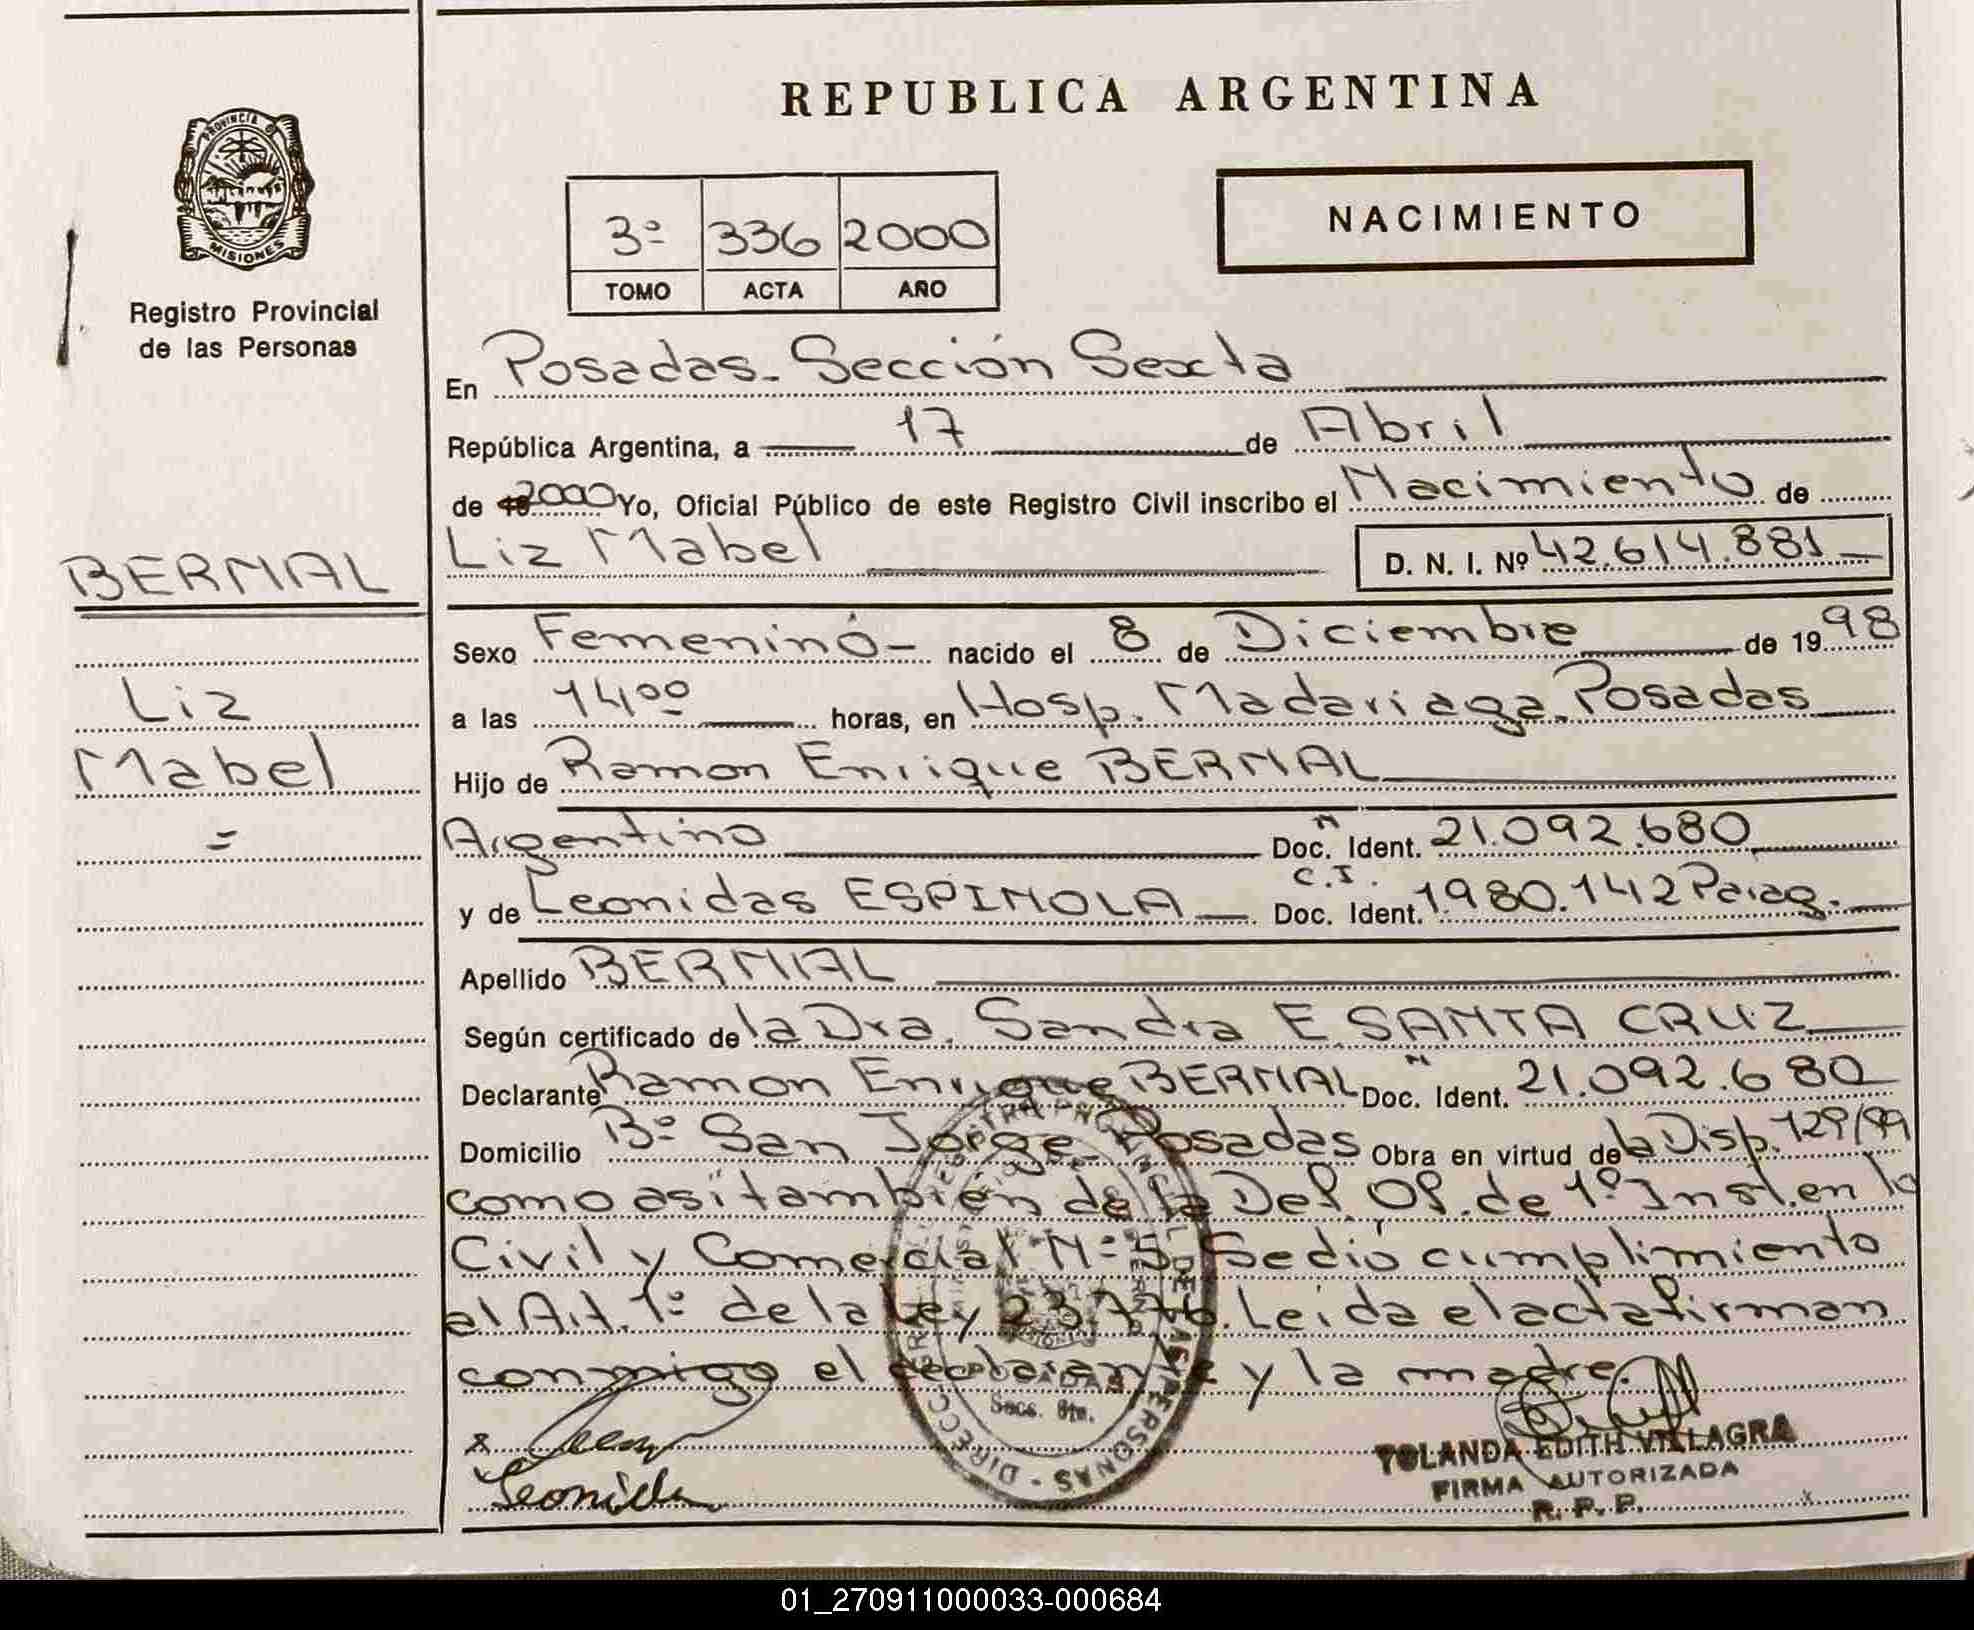 REPUBLICA ARGENTINA
PROVINCIA DE
MISIONES
Registro Provincial
de las Personas
3º 336 2000
TOMO ACTA AÑO
NACIMIENTO
En Posadas - Sección Sexta
República Argentina, a 17 de Abril
de 2000 Yo, Oficial Público de este Registro Civil inscribo el Nacimiento de
Liz Mabel D. N. I. Nº 42.614.881
BERNAL
Liz
Mabel
Sexo Femenino - nacido el 8 de Diciembre de 1998
a las 14⁰⁰ horas, en Hosp. Madariaga. Posadas
Hijo de Ramon Enrique BERNAL
Argentino Doc. N Ident. 21.092.680
y de Leonidas ESPINOLA C.I. Doc. Ident. 1980.142 Parag.
Apellido BERNAL
Según certificado de la Dra. Sandra E. SANTA CRUZ
Declarante Ramon Enrique BERNAL Doc. N Ident. 21.092.680
Domicilio Bº San Jorge - Posadas Obra en virtud de la Disp. 129/99
como asi tambien de la Def. Of. de 1º Inst. en lo
Civil y Comercial Nº 5. Se dió cumplimiento
al Art. 1º de la Ley 23.776. Leida el acta firman
conmigo el declarante y la madre.
Leonida
YOLANDA EDITH VILLAGRA
FIRMA AUTORIZADA
R. P. P.
01_270911000033-000684